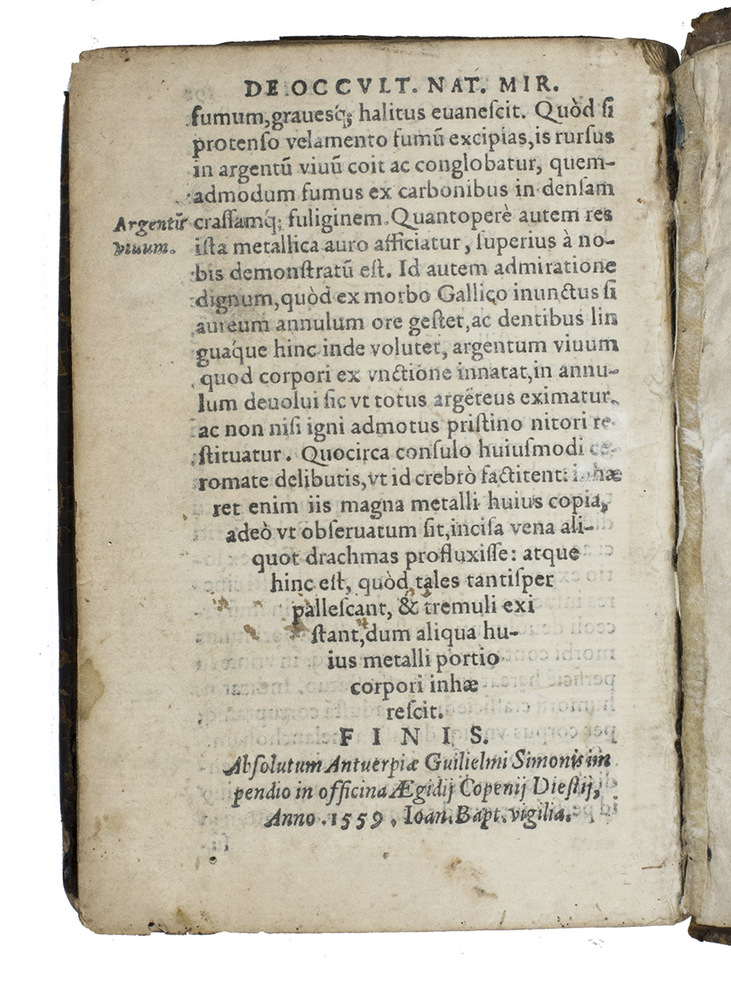 DE OCCVLT. NAT. MIR.
fumum, graueſq́; halitus euaneſcit. Quòd ſi
protenſo velamento fumū excipias, is rurſus
in argentū viuū coit ac conglobatur, quem-
admodum fumus ex carbonibus in denſam
Argentū
viuum.
craſſamq́; fuliginem. Quantoperè autem res
iſta metallica auro afficiatur, ſuperius à no-
bis demonſtratū eſt. Id autem admiratione
dignum, quòd ex morbo Gallico inunctus ſi
aureum annulum ore geſtet, ac dentibus lin
guáque hinc inde volutet, argentum viuum
quod corpori ex vnctione innatat, in annu-
lum deuolui ſic vt totus argēteus eximatur,
ac non niſi igni admotus priſtino nitori re-
ſtituatur. Quocirca conſulo huiuſmodi ce-
romate delibutis, vt id crebrò factitent: inhæ
ret enim iis magna metalli huius copia,
adeò vt obſeruatum ſit, inciſa vena ali-
quot drachmas profluxiſſe: atque
hinc eſt, quòd tales tantiſper
palleſcant, & tremuli exi
ſtant, dum aliqua hu-
ius metalli portio
corpori inhæ
reſcit.
FINIS.
Abſolutum Antuerpiæ Guilielmi Simonis im
pendio in officina Ægidij Copenij Dieſtij,
Anno .1559. Ioan. Bapt. vigilia.